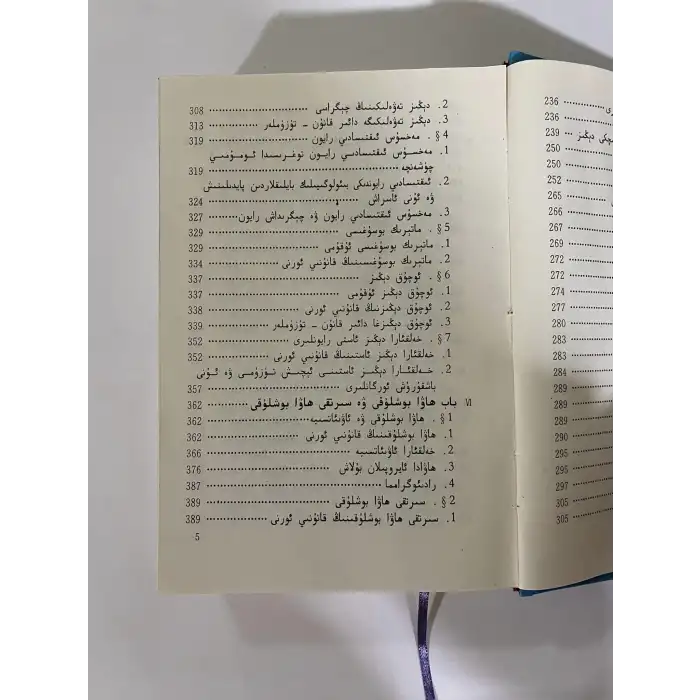 2. دېڭىز تەۋەلىكىنىڭ چېگراسى ........ 308
3. دېڭىز تەۋەلىكىگە دائىر قانۇن – تۈزۈملەر ........ 313
§4. مەخسۇس ئىقتىسادىي رايون ........ 319
1. مەخسۇس ئىقتىسادىي رايون توغرىسىدا ئومۇمىي
چۈشەنچە ........ 319
2. ئىقتىسادىي رايوندىكى بىئولوگىيىلىك بايلىقلاردىن پايدىلىنىش
ۋە ئۇنى ئاسراش ........ 324
3. مەخسۇس ئىقتىسادىي رايون ۋە چېگرىداش رايون ........ 327
§5. ماتېرىك بوسۇغىسى ........ 329
1. ماتېرىك بوسۇغىسى ئۇقۇمى ........ 329
2. ماتېرىك بوسۇغىسىنىڭ قانۇنىي ئورنى ........ 334
§6. ئوچۇق دېڭىز ........ 337
1. ئوچۇق دېڭىز ئۇقۇمى ........ 337
2. ئوچۇق دېڭىزنىڭ قانۇنىي ئورنى ........ 338
3. ئوچۇق دېڭىزغا دائىر قانۇن – تۈزۈملەر ........ 339
§7. خەلقئارا دېڭىز ئاستى رايونلىرى ........ 352
1. خەلقئارا دېڭىز ئاستىنىڭ قانۇنىي ئورنى ........ 352
2. خەلقئارا دېڭىز ئاستىنى ئېچىش تۈزۈمى ۋە ئۇنى
باشقۇرۇش ئورگانلىرى ........ 357
VI باب ھاۋا بوشلۇقى ۋە سىرتقى ھاۋا بوشلۇقى ........ 362
§1. ھاۋا بوشلۇقى ۋە ئاۋىئاتسىيە ........ 362
1. ھاۋا بوشلۇقىنىڭ قانۇنىي ئورنى ........ 362
2. خەلقئارا ئاۋىئاتسىيە ........ 366
3. ھاۋادا ئايروپىلان بۇلاش ........ 376
4. رادىئوگرامما ........ 387
§2. سىرتقى ھاۋا بوشلۇقى ........ 389
1. سىرتقى ھاۋا بوشلۇقىنىڭ قانۇنىي ئورنى ........ 389
5
236
236
239
250
250
252
265
266
267
269
272
272
274
277
280
283
283
284
289
289
289
290
295
295
297
305
305